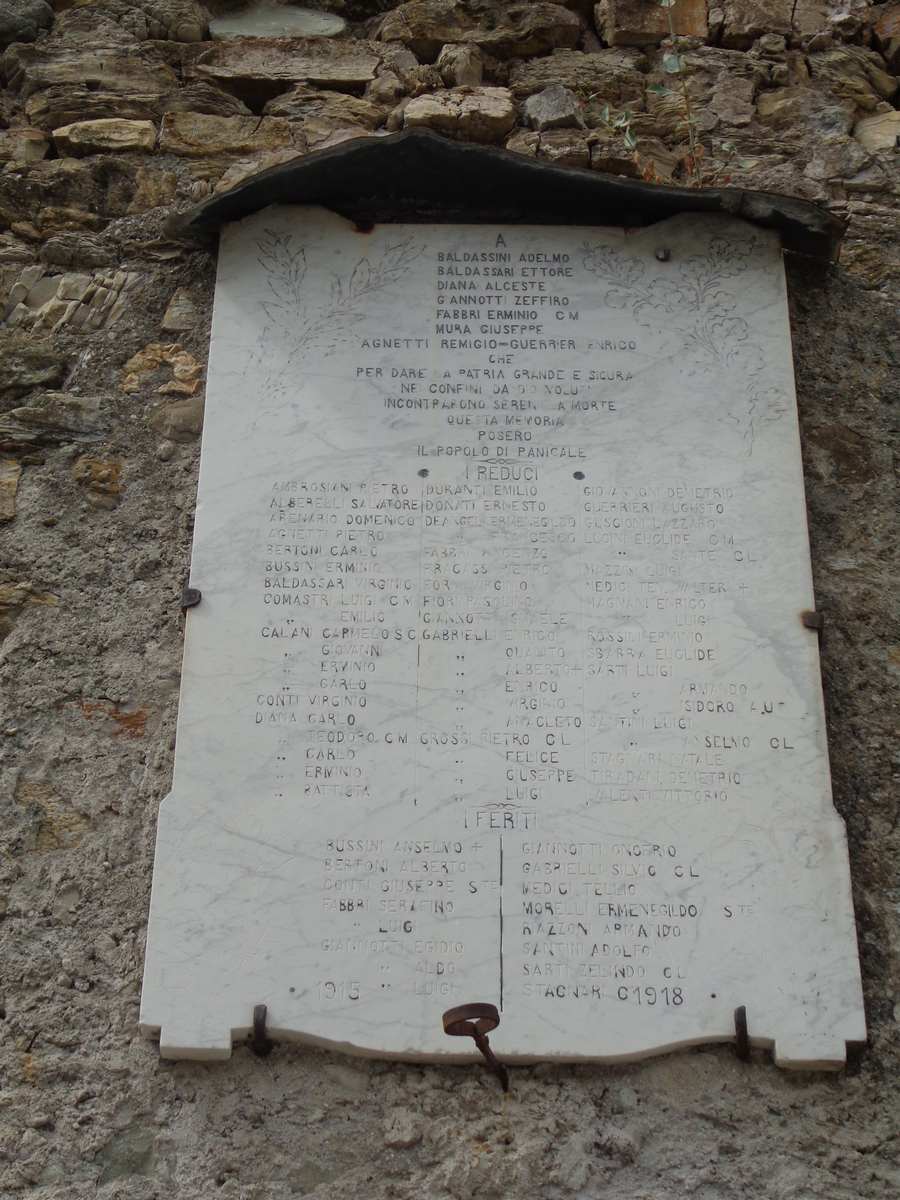 A
BALDASSINI ADELMO
BALDASSARI ETTORE
DIANA ALCESTE
GIANNOTTI ZEFFIRO
FABBRI ERMINIO CM
MURA GIUSEPPE
AGNETTI REMIGIO-GUERRIER ENRICO
CHE
PER DARE LA PATRIA GRANDE E SICURA
NEI CONFINI DA DIO VOLUTI
INCONTRARONO SERENI LA MORTE
QUESTA MEMORIA
POSERO
IL POPOLO DI PANICALE
I REDUCI
AMBROSIANI PIETRO
ALBERELLI SALVATORE
ARENARIO DOMENICO
AGNETTI PIETRO
BERTONI CARLO
BUSSINI ERMINIO
BALDASSARI VIRGINIO
COMASTRI LUIGI CM
" EMILIO
CALANI CARMELO S.C.
" GIOVANNI
" ERMINIO
" CARLO
CONTI VIRGINIO
DIANA CARLO
" TEODORO CM
" CARLO
" ERMINIO
" BATTISTA
DURANTI EMILIO
DONATI ERNESTO
DEANGELI ERMENEGILDO
" FRANCESCO
FABBRI
PIETRO
VIRGINIO
FIORI PASQUINO
GIANNOTTI
GABRIELLI ENRICO
" QUALITO
" ALBERTO +
" ENRICO
" VIRGINIO
" ANACLETO
GROSSI PIETRO CL
" FELICE
" GIUSEPPE
" LUIGI
GIOVANNONI DEMETRIO
GUERRIERI AUGUSTO
LAZZARO
EUCLIDE CM
" SANTE CL
LUIGI
MEDICI WALTER +
MAGNANI ENRICO
" LUIGI
ROSSINI ERMINIO
SBARRA EUCLIDE
SARTI LUIGI
" ARMANDO
" ISIDORO
SANTINI LUIGI
" ANSELMO CL
STAGNARI NATALE
TIRADANI DEMETRIO
VALENTI VITTORIO
I FERITI
BUSSINI ANSELMO +
BERTONI ALBERTO
CONTI GIUSEPPE STE
FABBRI SERAFINO
" LUIGI
GIANNOTTI EGIDIO
" ALDO
" LUIGI
GIANNOTTI ONORIO
GABRIELLI SILVIO CL
MEDICI TELLIO
MORELLI ERMENEGILDO STE
RAZZONI ARMANDO
SANTINI ADOLFO
SARTI ZELINDO CL
STAGNARI G
1915
1918